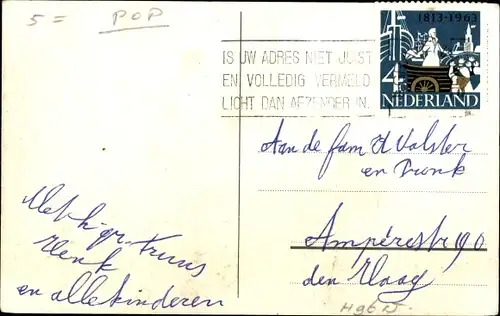 5= POP
1813-1963
4
NEDERLAND
IS UW ADRES NIET JUIST
EN VOLLEDIG VERMELD
LICHT DAN AFZENDER IN.
Aan de fam H Valster
en Pronk
Ampèrestr 90
den Haag
Met h. gr. Truus
Henk
en alle kinderen